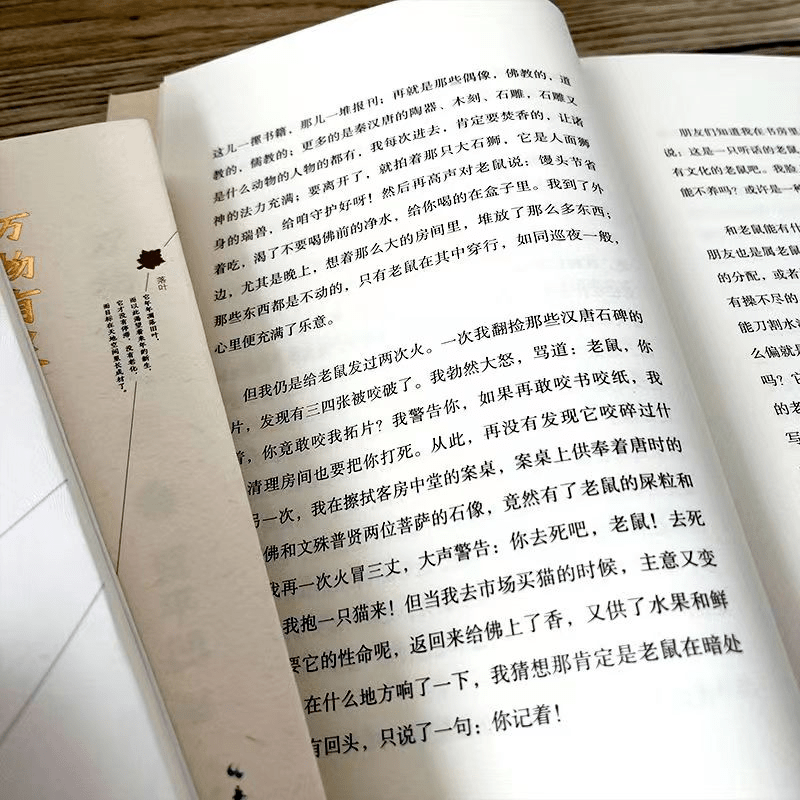 万物有
落叶
它年年凋落旧叶，
而以此渴望着来年的新生，
它才没有停滞，没有老化，
而目标在天地空间里长成材了。
这儿一摞书籍，那儿一堆报刊；再就是那些偶像，佛教的，道
教的，儒教的；更多的是秦汉唐的陶器、木刻、石雕，石雕又
是什么动物的人物的都有，我每次进去，肯定要焚香的，让诸
神的法力充满；要离开了，就拍着那只大石狮，它是人面狮
身的瑞兽，给咱守护好呀！然后再高声对老鼠说：馒头节省
着吃，渴了不要喝佛前的净水，给你喝的在盒子里。我到了外
边，尤其是晚上，想着那么大的房间里，堆放了那么多东西；
那些东西都是不动的，只有老鼠在其中穿行，如同巡夜一般，
心里便充满了乐意。
但我仍是给老鼠发过两次火。一次我翻捡那些汉唐石碑的
片，发现有三四张被咬破了。我勃然大怒，骂道：老鼠，你
，你竟敢咬我拓片？我警告你，如果再敢咬书咬纸，我
清理房间也要把你打死。从此，再没有发现它咬碎过什
另一次，我在擦拭客房中堂的案桌，案桌上供奉着唐时的
佛和文殊普贤两位菩萨的石像，竟然有了老鼠的屎粒和
我再一次火冒三丈，大声警告：你去死吧，老鼠！去死
我抱一只猫来！但当我去市场买猫的时候，主意又变
要它的性命呢，返回来给佛上了香，又供了水果和鲜
在什么地方响了一下，我猜想那肯定是老鼠在暗处
有回头，只说了一句：你记着！
朋友们知道我在书房里
说：这是一只听话的老鼠
有文化的老鼠吧。我脸
能不养吗？或许是一种
和老鼠能有什
朋友也是属老鼠
的分配，或者
有操不尽的
能刀割水
么偏就是
吗？它
的老
写